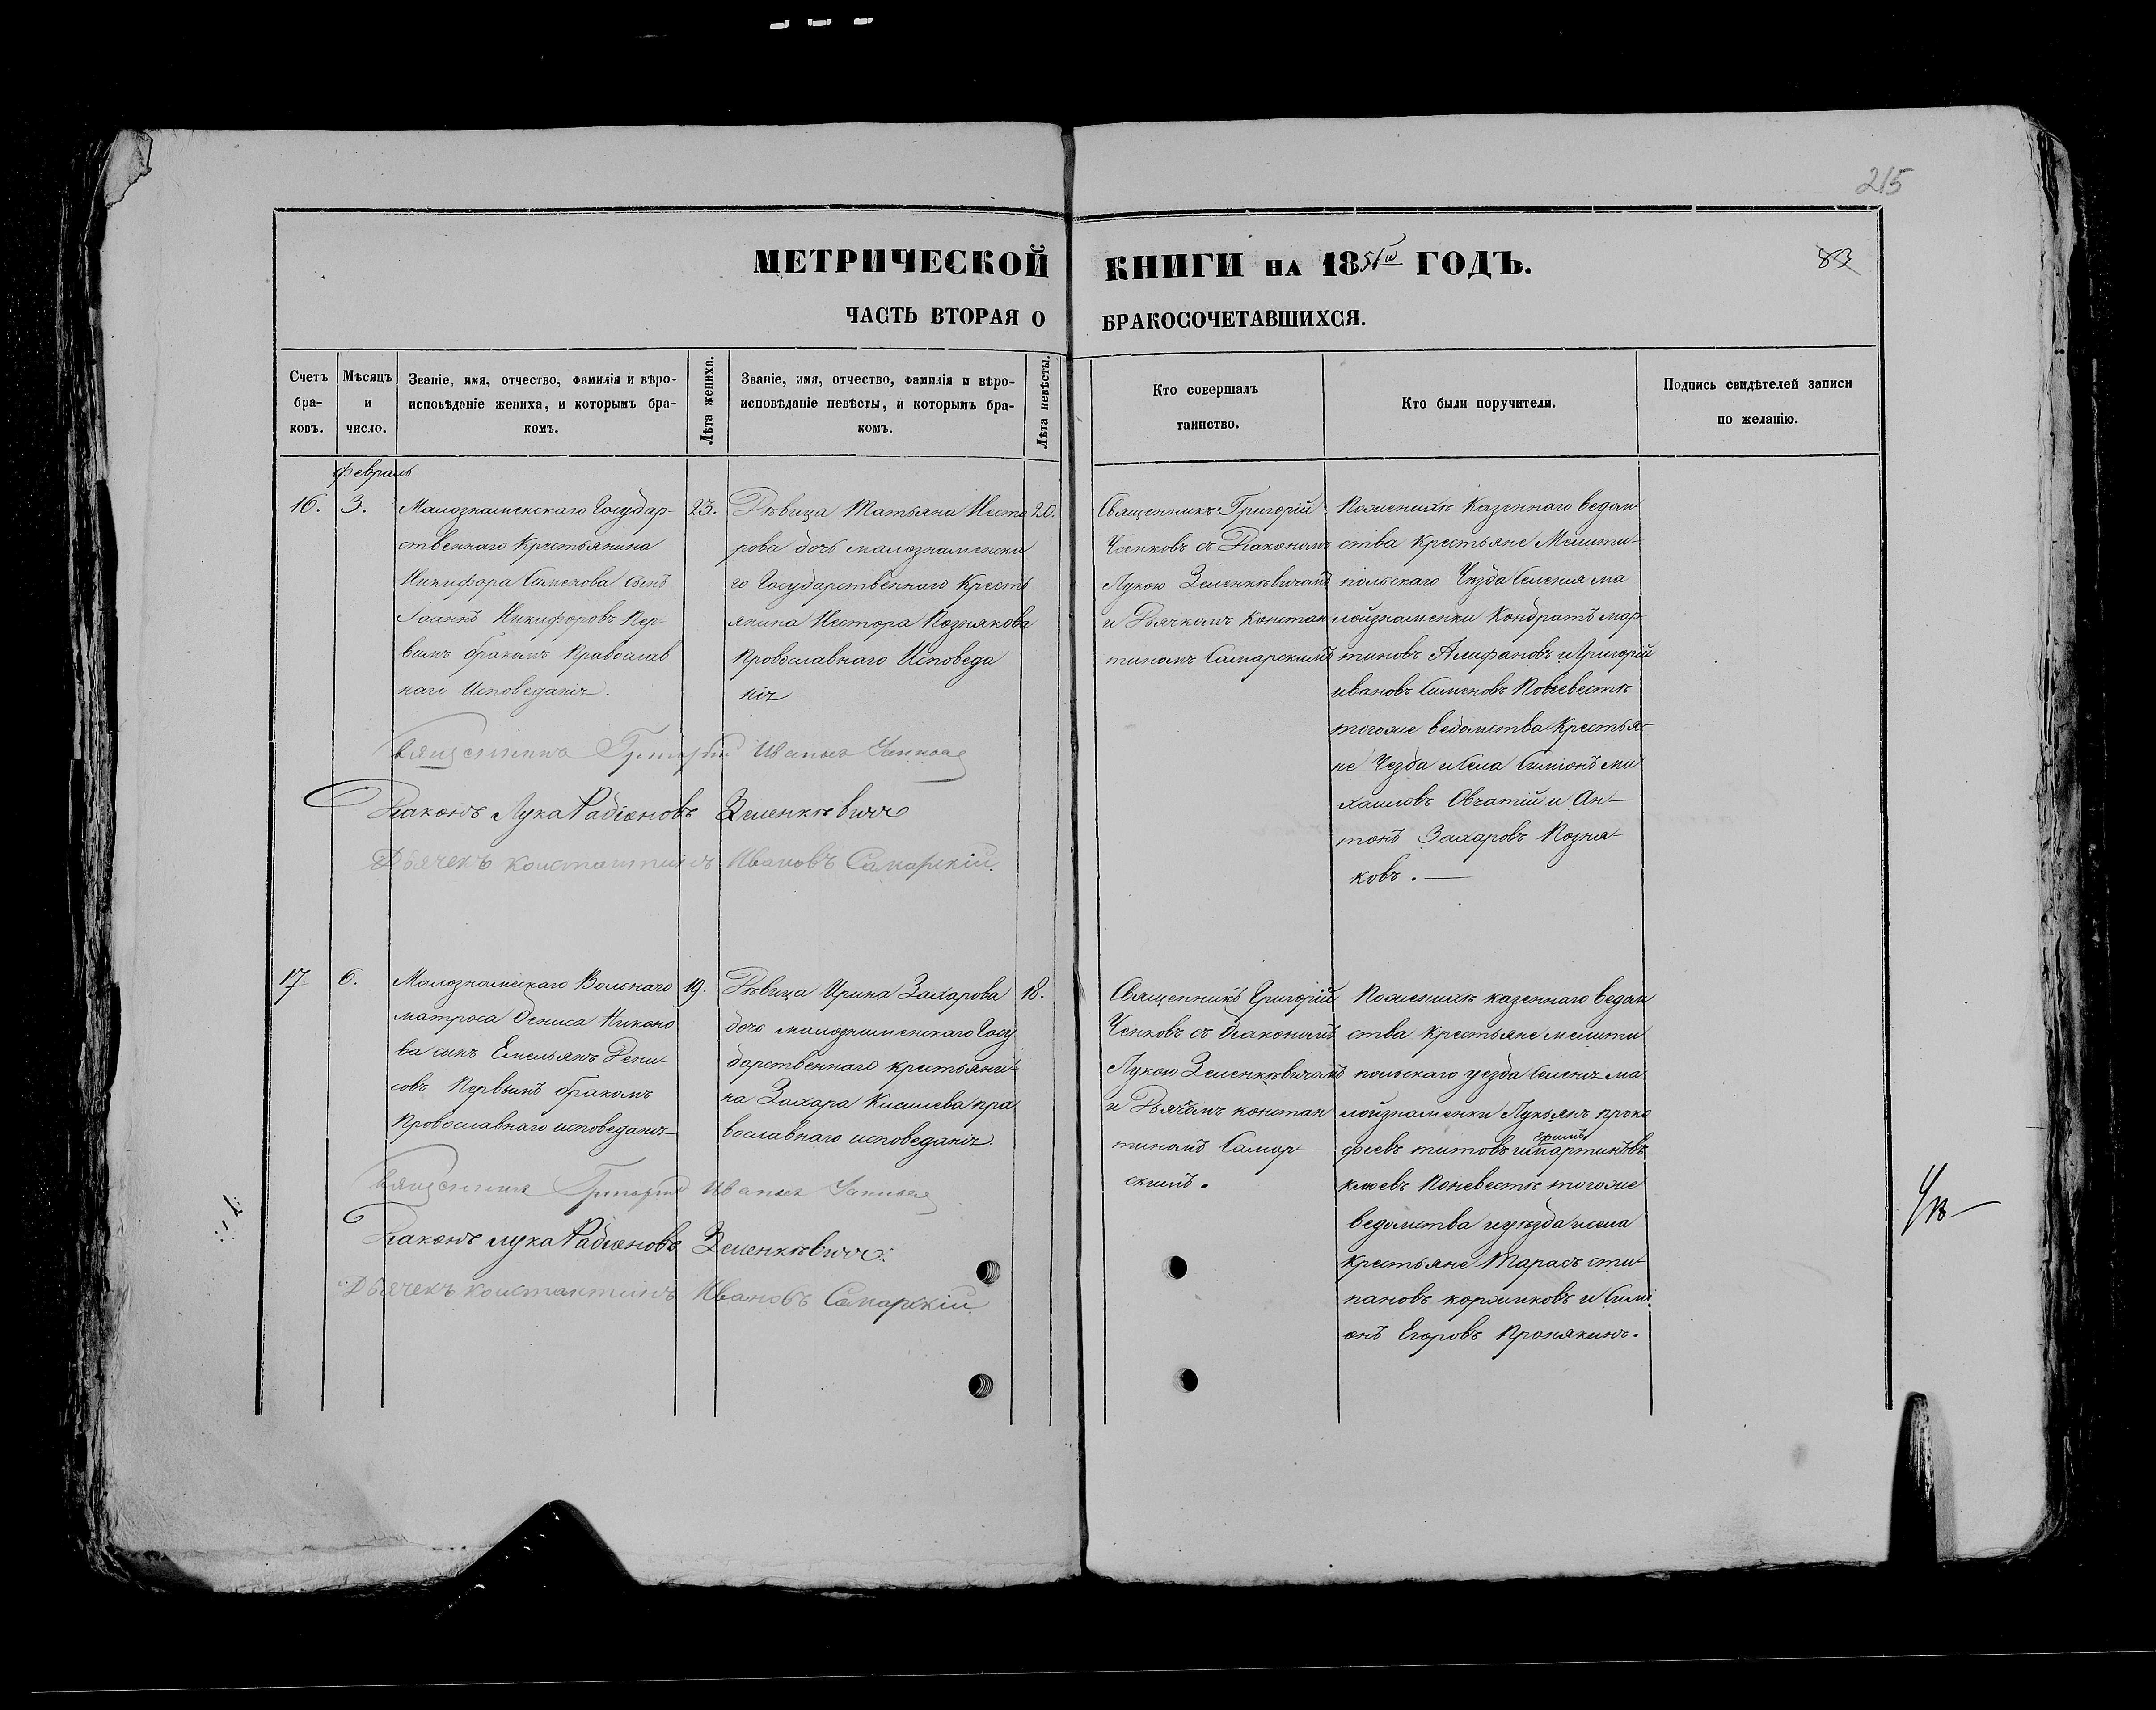 215
МЕТРИЧЕСКОЙ КНИГИ НА 1851й ГОДЪ.
83
ЧАСТЬ ВТОРАЯ О БРАКОСОЧЕТАВШИХСЯ.
Счетъ бра- ковъ.
Мѣсяцъ и число.
Званіе, имя, отчество, фамилія и вѣро-
исповѣданіе жениха, и которымъ бра-
комъ.
Лѣта жениха.
Званіе, имя, отчество, фамилія и вѣро-
исповѣданіе невѣсты, и которымъ бра-
комъ.
Лѣта невѣсты.
Кто совершалъ
таинство.
Кто были поручители.
Подпись свидѣтелей записи
по желанію.
Февраль
16.
3.
Малознаменскаго Государ-
ственнаго Крестьянина
Никифора Сименова сынъ
Іоаннъ Никифоровъ Пер-
вымъ бракомъ Православ
наго Исповеданія.
23.
Дѣвица Татьяна Несте
рова дочь малознаменска
го Государственнаго Кресть
янина Нестора Познякова
Провославнаго Исповеда
нія
20.
Священникъ Григорій
Ченковъ съ Діакономъ
Лукою Зеленкѣвичамъ
и Дьячкомъ Констан
тиномъ Самарскимъ
Поженихѣ Казеннаго ведом
ства Крестьяне Мелити-
польскаго Уезда Селения ма
лойзнаменки Кондратъ мар
тиновъ Алифановъ и Григорій
ивановъ Сименовъ Поневестѣ
тогоже ведомства Крестья-
не Уезда и Села Симіонъ ми
хаиловъ Овчатій и Ан-
тонъ Захаровъ Позня-
ковъ.
Священникъ Григорій Ивановъ Ченковъ
Діаконъ Лука Радіоновъ Зеленкѣвичъ
Дьячекъ Константинъ Ивановъ Самарскій
17.
6.
Малознаменскаго Вольнаго
матроса Дениса Никоно
ва сынъ Емельянъ Дени-
совъ Первымъ бракомъ
Провославнаго исповеданія
19.
Дѣвица Ирина Захарова
дочь малознаменскаго Госу
дарственнаго крестьяни-
на Захара Кисилева пра
вославнаго исповеданія.
18.
Священникъ Григорій
Ченковъ съ діакономъ
Лукою Зеленкѣвичамъ
и Дьячкомъ констан
тиномъ Самар-
скимъ.
Поженихѣ казеннаго ведом
ства Крестьяне мелити
польскаго уезда Селения ма
лойзнаменки Лукьянъ проко
фиевъ титовъ и Ефимъ мартиновъ
клюевъ Поневестѣ тогоже
ведомства и уезда и села
крестьяне Тарасъ сти-
пановъ коржиковъ и Симі
онъ Егоровъ Пронякинъ.
Священникъ Григорій Ивановъ Ченковъ
Діаконъ Лука Радіоновъ Зеленкѣвичъ
Дьячекъ Константинъ Ивановъ Самарскій